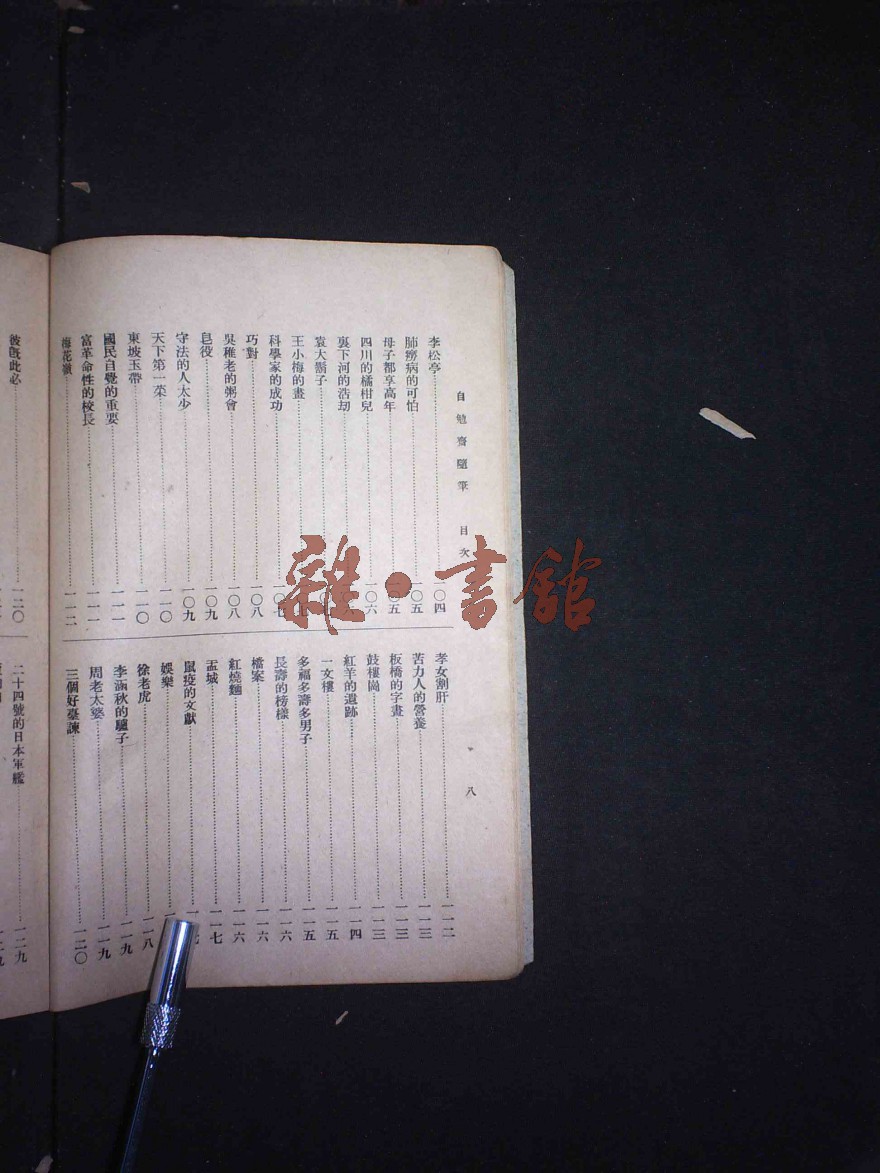 自勉齋隨筆 目次
八
李松亭 一〇四
肺癆病的可怕 一〇五
母子都享高年 一〇五
四川的橘柑兒 一〇六
裏下河的浩劫
袁大鬍子
王小梅的畫
科學家的成功 一〇七
巧對 一〇八
吳稚老的粥會 一〇八
皂役 一〇九
守法的人太少 一〇九
天下第一菜 一一〇
東坡玉帶 一一〇
國民自覺的重要 一一一
富革命性的校長 一一一
梅花嶺 一一二
孝女割肝 一一二
苦力人的營養 一一三
板橋的字畫 一一三
鼓樓崗 一一三
紅羊的遺跡 一一四
一文樓 一一五
多福多壽多男子 一一五
長壽的榜樣 一一六
檔案 一一六
紅燒麵 一一六
盂城 一一七
鼠疫的文獻
娛樂
徐老虎 一一八
李涵秋的驢子 一一九
周老太婆 一一九
三個好臺諫 一二〇
彼既此必 一二〇
二十四號的日本軍艦 一二九
雜·書館